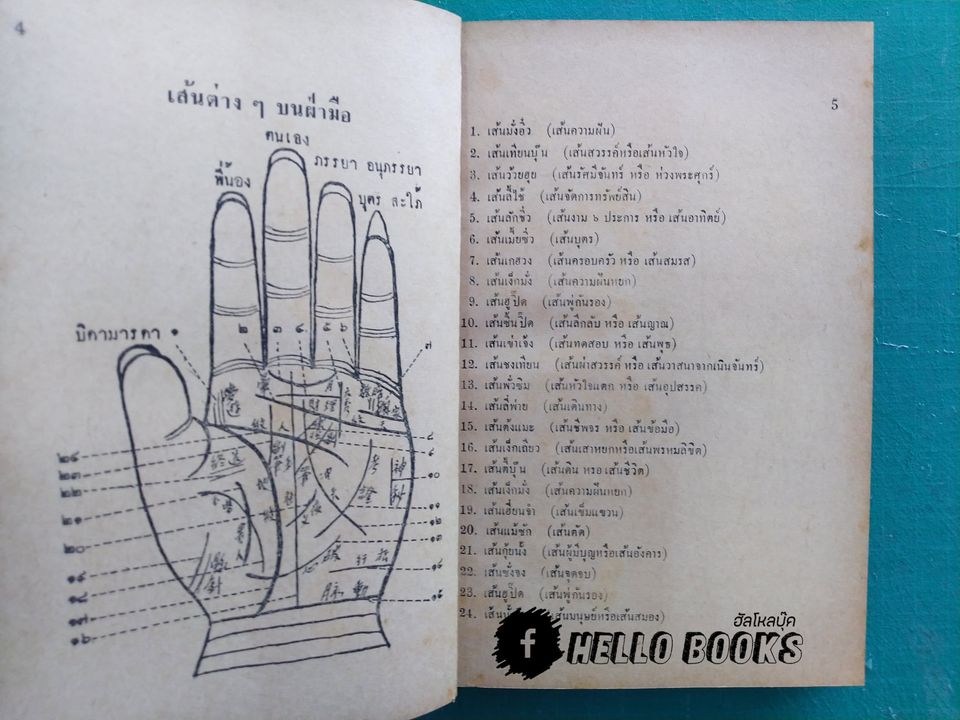 4
เส้นต่าง ๆ บนฝ่ามือ
ตนเอง
ภรรยา อนุภรรยา
พี่น้อง
บุตร สะใภ้
บิดามารดา ๑
๒ ๓ ๔ ๕ ๖
๗
๘
๙
๑๐
๑๑
๑๒
๑๓
๑๔
๑๕
๒๔
๒๓
๒๒
๒๑
๒๐
๑๙
๑๘
๑๗
๑๖
5
1. เส้นมั่งอิ๋ว (เส้นความฝัน)
2. เส้นเทียนบุ๊น (เส้นสวรรค์หรือเส้นหัวใจ)
3. เส้นว่วยฮุย (เส้นรัศมีจันทร์ หรือ ห่วงพระศุกร์)
4. เส้นลี่ใช้ (เส้นจัดการทรัพย์สิน)
5. เส้นลักซิ่ว (เส้นงาม ๖ ประการ หรือ เส้นอาทิตย์)
6. เส้นเมี่ยซิ่ว (เส้นบุตร)
7. เส้นเกฮวง (เส้นครอบครัว หรือ เส้นสมรส)
8. เส้นเง็กมั่ง (เส้นความฝันหยก)
9. เส้นฮูปิด (เส้นพู่กันรอง)
10. เส้นซิ่นปิด (เส้นลึกลับ หรือ เส้นญาณ)
11. เส้นเข่าเจ้ง (เส้นทดสอบ หรือ เส้นพุธ)
12. เส้นชงเทียน (เส้นผ่าสวรรค์ หรือ เส้นวาสนาจากเนินจันทร์)
13. เส้นพั่วซิม (เส้นหัวใจแตก หรือ เส้นอุปสรรค)
14. เส้นลี่พ่าย (เส้นเดินทาง)
15. เส้นตั้งแมะ (เส้นชีพจร หรือ เส้นข้อมือ)
16. เส้นเง็กเถียว (เส้นเสาหยกหรือเส้นพรหมลิขิต)
17. เส้นตี้บุ๊น (เส้นดิน หรอ เส้นชีวิต)
18. เส้นเง็กมั่ง (เส้นความฝันหยก)
19. เส้นเฮี่ยนจำ (เส้นเข็มแขวน)
20. เส้นแม้ซัก (เส้นตัด)
21. เส้นกุ้ยนั้ง (เส้นผู้มีบุญหรือเส้นอังคาร)
22. เส้นชั่งจง (เส้นจุดจบ)
23. เส้นฮูปิด (เส้นพู่กันรอง)
24. (เส้นมนุษย์หรือเส้นสมอง)
ฮัลโหลบุ๊ค
f HELLO BOOKS